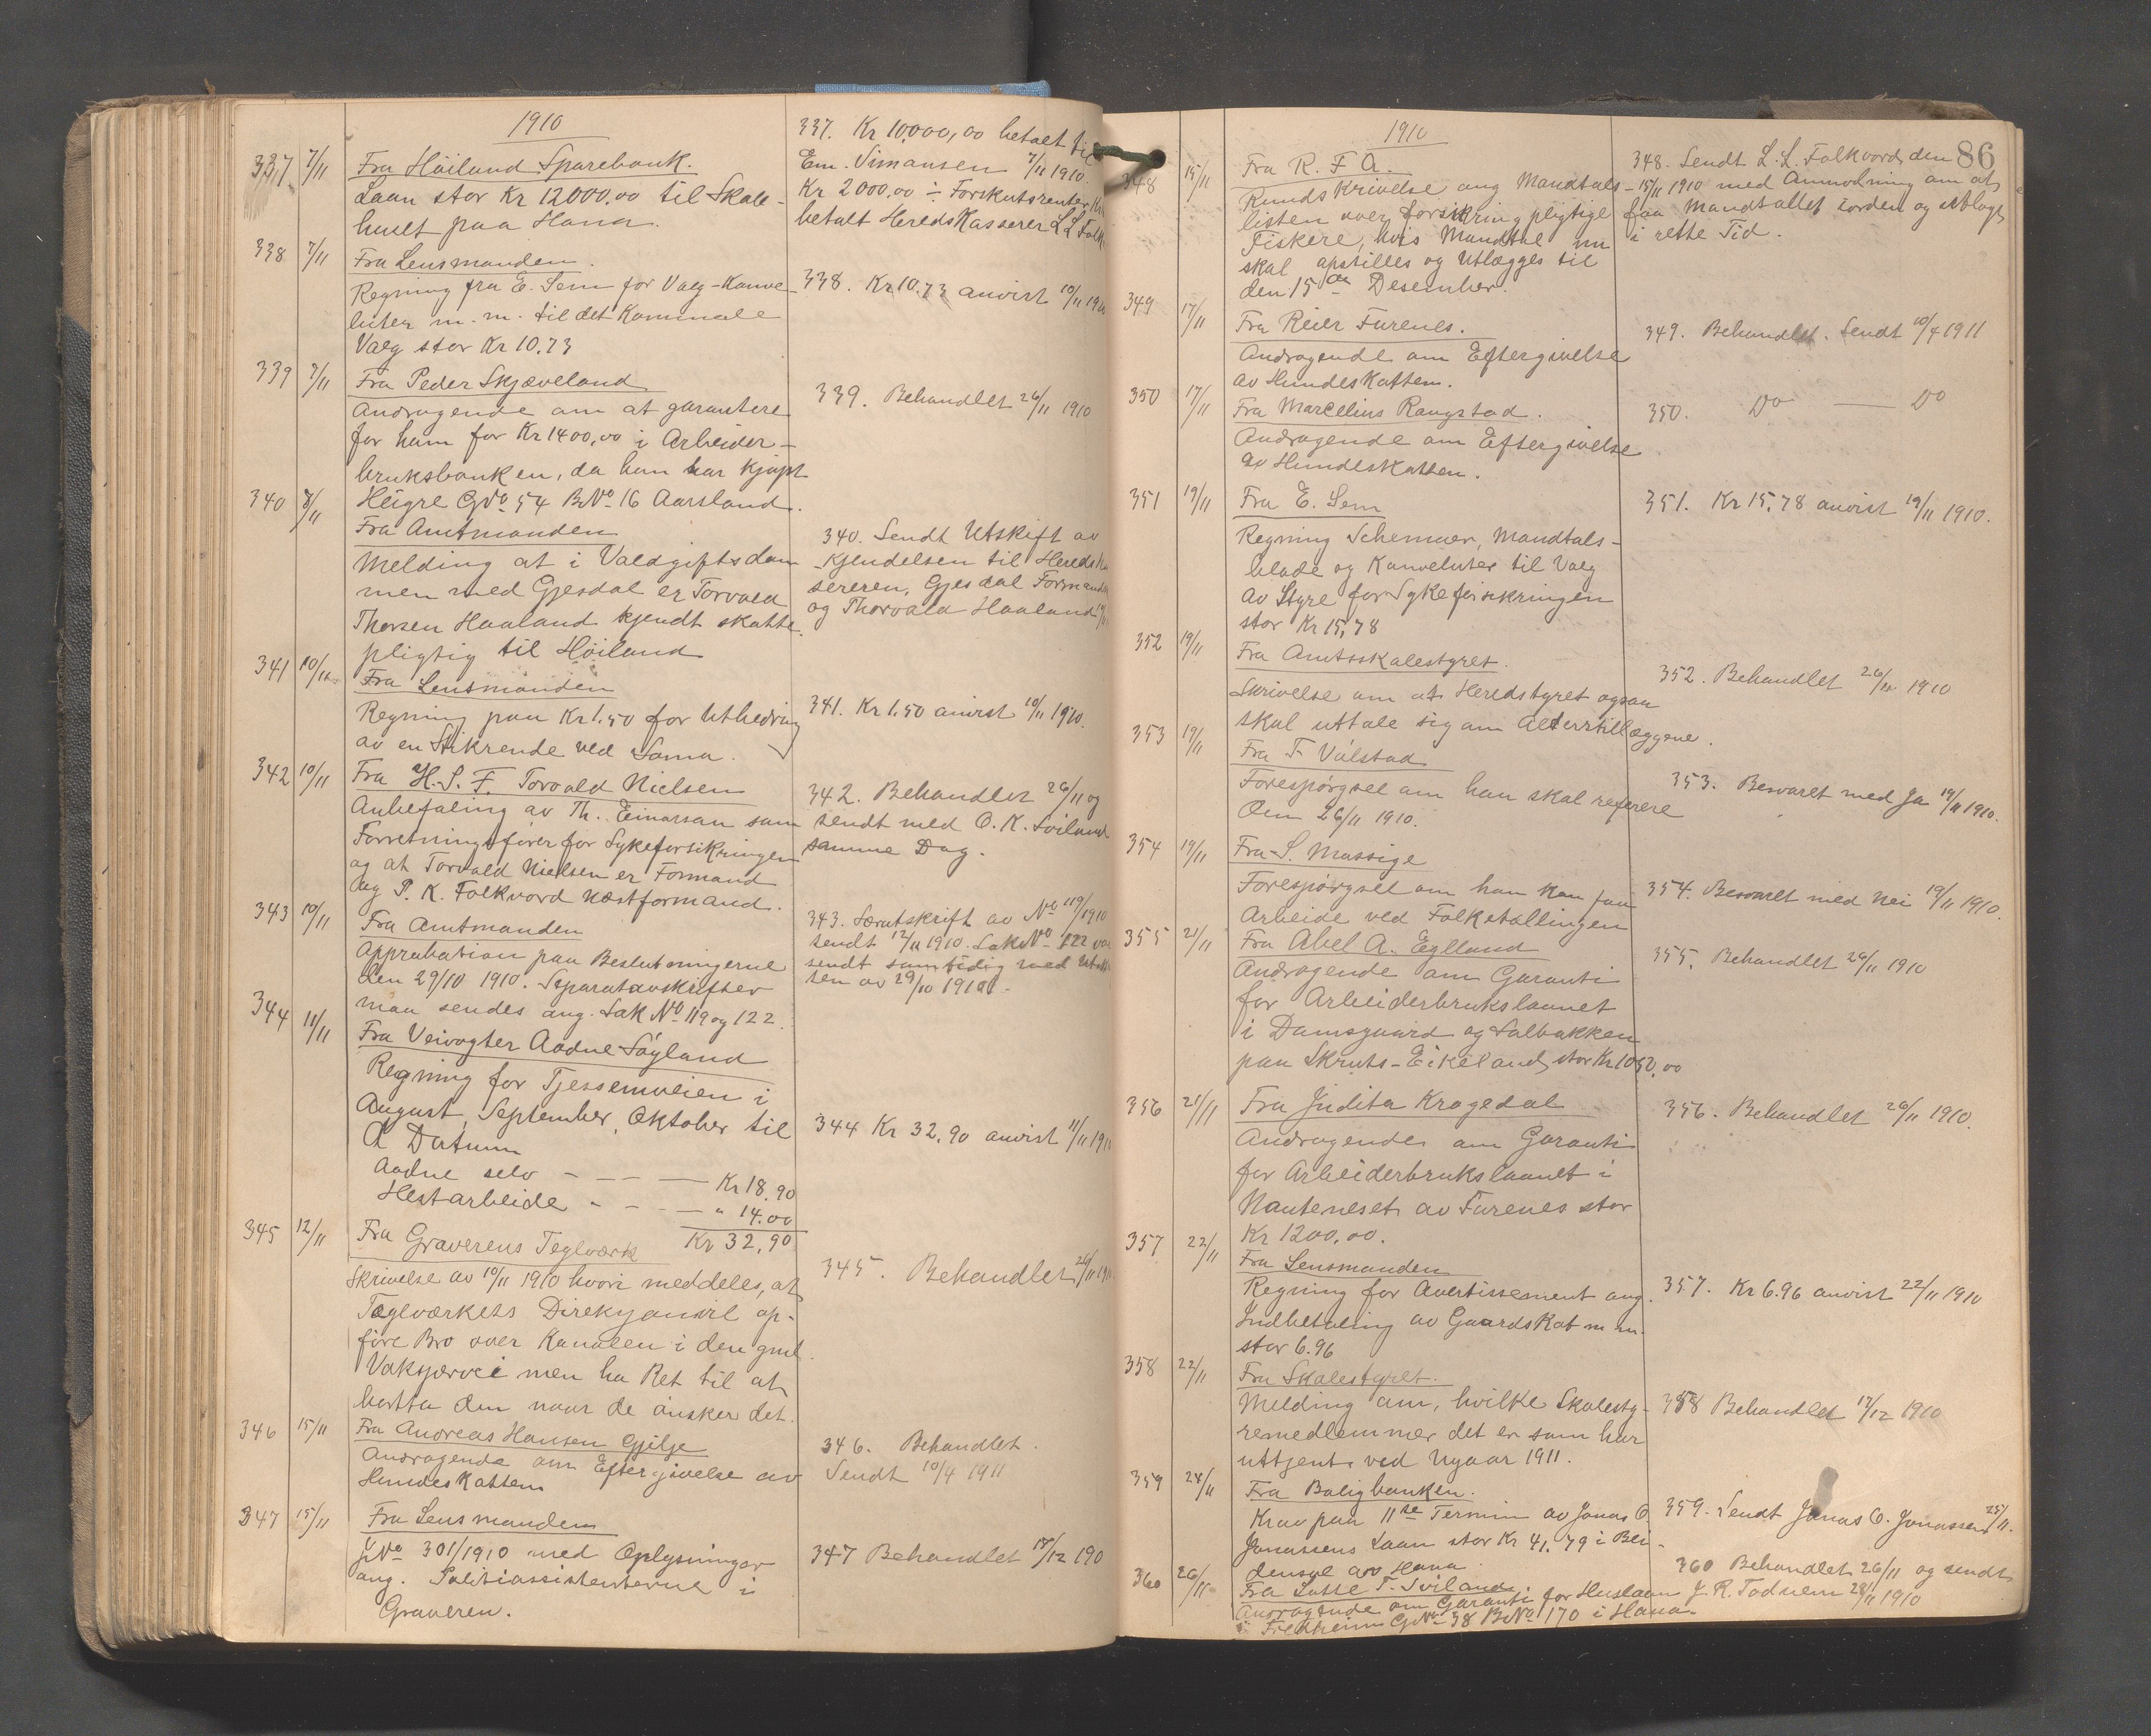 1910
337 7/11 Fra Höiland Sparebank.
Laan stor Kr 12000.00 til Skole-
huset paa Hana.
337. Kr 10000,00 betalt til
Em. Simonsen 7/11 1910.
Kr 2000.00 ÷ Forskutsrenter
betalt HeredsKasserer L L
338 7/11 Fra Lensmanden.
Regning fra E. Sem for Valg-Konvo-
luter m. m. til det Kommunale
Valg stor Kr 10.73
338. Kr 10.73 anvist 10/11 1910
339 7/11 Fra Peder Skjæveland
Andragende om at garantere
for ham for Kr 1400,00 i Arbeider-
bruksbanken, da han har kjøpt
Heigre GNo 54 BNo 16 Aarsland.
339. Behandlet 26/11 1910
340 8/11 Fra Amtmanden
Melding at i Voldgiftsdom
men med Gjesdal er Torvald
Thorsen Haaland kjendt skatte-
pligtig til Höiland
340. Sendt Utskift av
Kjendelsen til Hereds
sereren, Gjesdal Formand
og Thorvald Haaland
341 10/11 Fra Lensmanden
Regning paa Kr 1.50 for Utbedring
av en Stikrende ved Soma.
341. Kr 1.50 anvist 10/11 1910.
342 10/11 Fra H. S. F. Torvald Nielsen
Anbefaling av Th. Einarsen som
Forretningsfører for Sykeforsikringen
og at Torvald Nielsen er Formand
og P. K. Folkvord Næstformand.
342. Behandlet 26/11 og
sendt med O. K. Sviland
samme Dag.
343 10/11 Fra Amtmanden
Approbation paa Beslutningerne
den 29/10 1910. Separatavskrifter
maa sendes ang. Sak No 119 og 122.
343. Særutskrift av No 119/1910
sendt 12/11 1910. Sak No 122 var
sendt samtidig med Utskif
ten av 29/10 1910.
344 11/11 Fra Veivogter Aadne Söyland
Regning for Tjessemveien i
August, September, Oktober til
D Datum
Aadne selv - - - Kr 18.90
Hestarbeide - - - " 14.00
Kr 32,90
344 Kr 32.90 anvist 11/11 1910
345 12/11 Fra Graverens Teglværk
Skrivelse av 10/11 1910 hvori meddeles, at
Teglværkets Direksjon vil op-
føre Bro over Kanalen i den gml.
Vatnsjøvei men ha Ret til at
bortta den naar de ønsker det.
345. Behandlet 26/11 1910
346 15/11 Fra Andreas Hansen Gjilje
Andragende om Eftergivelse av
HundesKatten
346. Behandlet.
Sendt 10/4 1911
347 15/11 Fra Lensmanden
JNo 301/1910 med Oplysninger
ang. Politiassistenterne i
Graveren.
347 Behandlet 17/12 190
1910
86
348 15/11 Fra R. F. A.
RundsKrivelse ang Mandtals-
listen over forsikringspligtige
Fiskere, hvis Mandtal nu
skal opstilles og Utlægges til
den 15de Desember.
348. Sendt L. L. Folkvord, den
15/11 1910 med Anmodning om at
faa Mandtallet iorden og utlagt
i rette Tid.
349 17/11 Fra Reier Furenes.
Andragende om Eftergivelse
av HundesKatten.
349. Behandlet. Sendt 10/4 1911
350 17/11 Fra Marcelius Rangstad.
Andragende om Eftergivelse
av HundesKatten.
350. Do — Do
351 19/11 Fra E. Sem
Regning Schemaer, Mandtals-
blade og Konvoluter til Valg
av Styre for Sykeforsikringen
stor Kr 15,78
351. Kr 15,78 anvist 19/11 1910.
352 19/11 Fra Amtsskolestyret.
Skrivelse om at Heredstyret ogsaa
skal uttale sig om Alderstillæggene.
352. Behandlet 26/11 1910
353 19/11 Fra T. Válstad
Forespørgsel om han skal referere
Den 26/11 1910.
353. Besvaret med Ja 19/11 1910.
354 19/11 Fra S. Mossige
Forespørgsel om han kan faa
Arbeide ved Folketællingen
354. Besvaret med Nei 19/11 1910.
355 21/11 Fra Abel A. Eglland
Andragende om Garanti
for Arbeiderbrukslaanet
i Damsgaard og Solbakken
paa Skruts-Eikeland, stor Kr 1050.00
355. Behandlet 26/11 1910
356 21/11 Fra Judita Kragedal
Andragende om Garanti
for Arbeiderbrukslaanet i
Nauteneset av Furenes stor
Kr 1200.00.
356. Behandlet 26/11 1910.
357 22/11 Fra Lensmanden
Regning for Avertissement ang.
Indbetaling av GaardsKat m. m.
stor 6.96
357. Kr 6.96 anvist 22/11 1910
358 22/11 Fra Skolestyret.
Melding om, hvilke Skolesty-
remedlemmer det er som har
uttjent ved Nyaar 1911.
358 Behandlet 17/12 1910
359 24/11 Fra Boligbanken.
Krav paa 11te Termin av Jonas O.
Jonassens Laan stor Kr 41.79 i Bei-
densol av Hana.
359. Sendt Jonas O. Jonassen 25/11.
360 26/11 Fra Lotte T. Sviland.
Andragende om Garanti for Huslaan
i GNo 38 BNo 170 i Hana.
360 Behandlet 26/11 og sendt
J. R. Todnem 28/11 1910